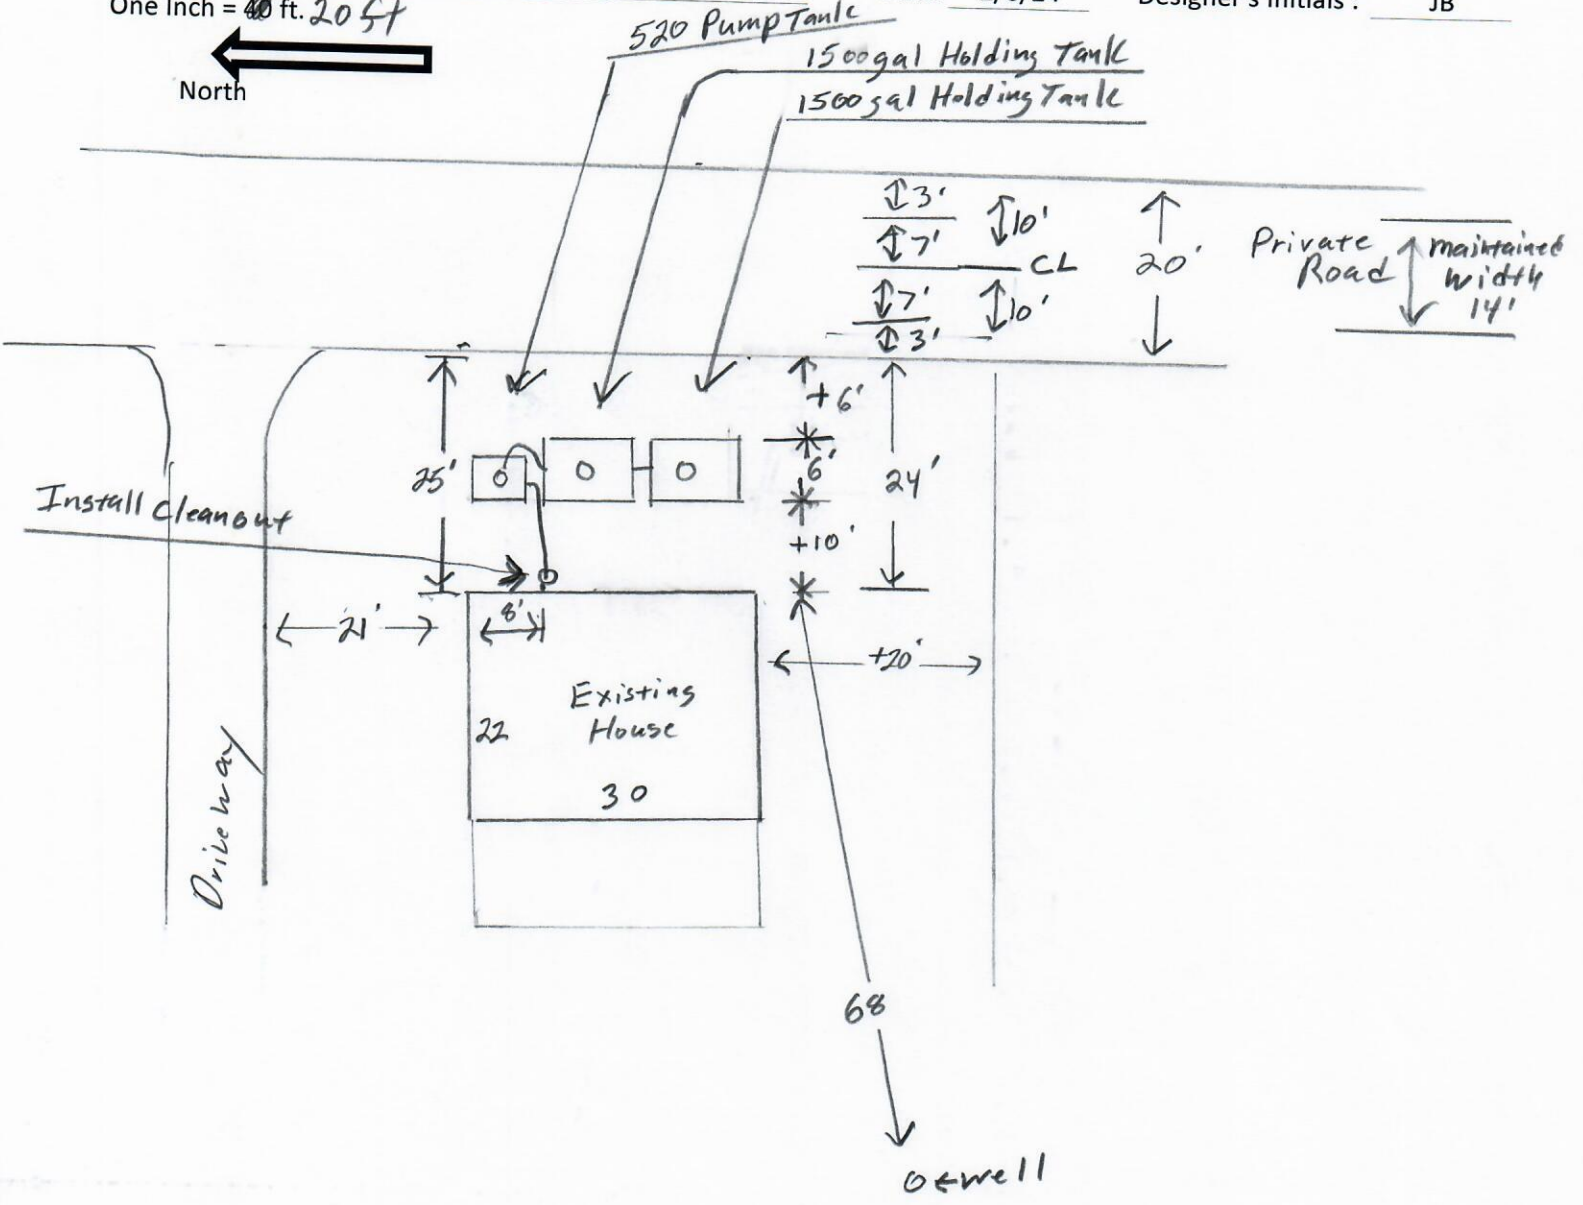 One Inch = ft. 20 ft
Designer's Initials : JB
North
520 Pump Tank
1500gal Holding Tank
1500gal Holding Tank
3'
10'
7'
CL
20'
Private Road
maintained width 14'
7'
10'
3'
+6'
25'
6'
24'
Install Cleanout
+10'
21'
8'
+20'
Existing
House
22
30
Driveway
68
well